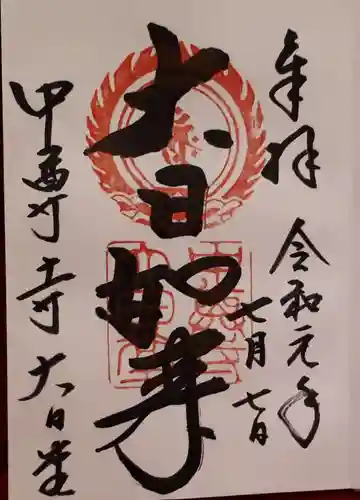 奉拝 令和元年
七月七日
大日如来
中尊寺 大日堂